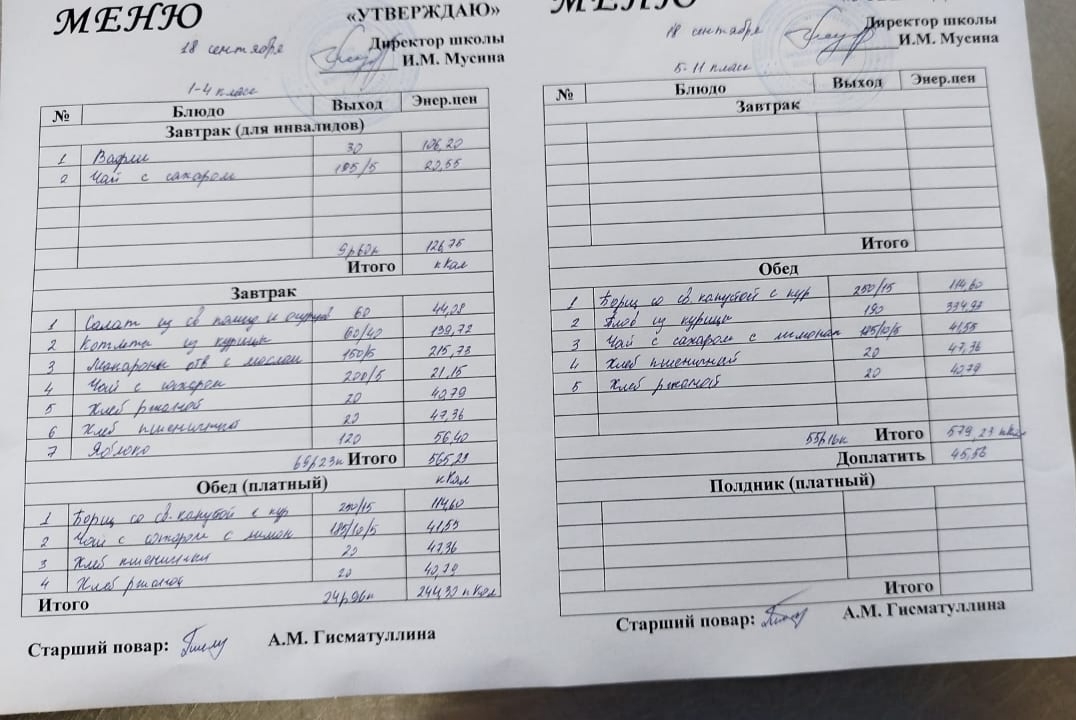 МЕНЮ
«УТВЕРЖДАЮ»
18 сентября
Директор школы
И.М. Мусина
1-4 класс
№ Блюдо Выход Энер.цен
Завтрак (для инвалидов)
1 Вафли 30 106,20
2 Чай с сахаром 195/5 20,55
9р60к 126,75
Итого кКал
Завтрак
1 Салат из св помид и огурцов 60 44,08
2 Котлета из курицы 60/40 139,72
3 Макароны отв с маслом 150/5 215,73
4 Чай с сахаром 200/5 21,15
5 Хлеб ржаной 20 40,79
6 Хлеб пшеничный 20 47,36
7 Яблоко 120 56,40
69р23к Итого 565,23
кКал
Обед (платный)
1 Борщ со св.капустой с кур 250/15 114,60
2 Чай с сахаром с лимон 185/10/5 41,55
3 Хлеб пшеничный 20 47,36
4 Хлеб ржаной 20 40,79
Итого 24р96к 244,30 кКал
Старший повар: А.М. Гисматуллина
МЕНЮ
18 сентября
Директор школы
И.М. Мусина
5-11 класс
№ Блюдо Выход Энер.цен
Завтрак
Итого
Обед
1 Борщ со св.капустой с кур 250/15 114,60
2 Плов из курицы 190 334,93
3 Чай с сахаром с лимоном 185/10/5 41,55
4 Хлеб пшеничный 20 47,36
5 Хлеб ржаной 20 40,79
55р16к Итого 579,23 кКал
Доплатить 45,56
Полдник (платный)
Итого
Старший повар: А.М. Гисматуллина